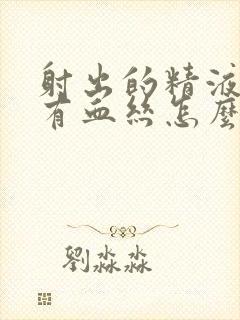 射出的精液
有血丝怎麼
劉淼淼